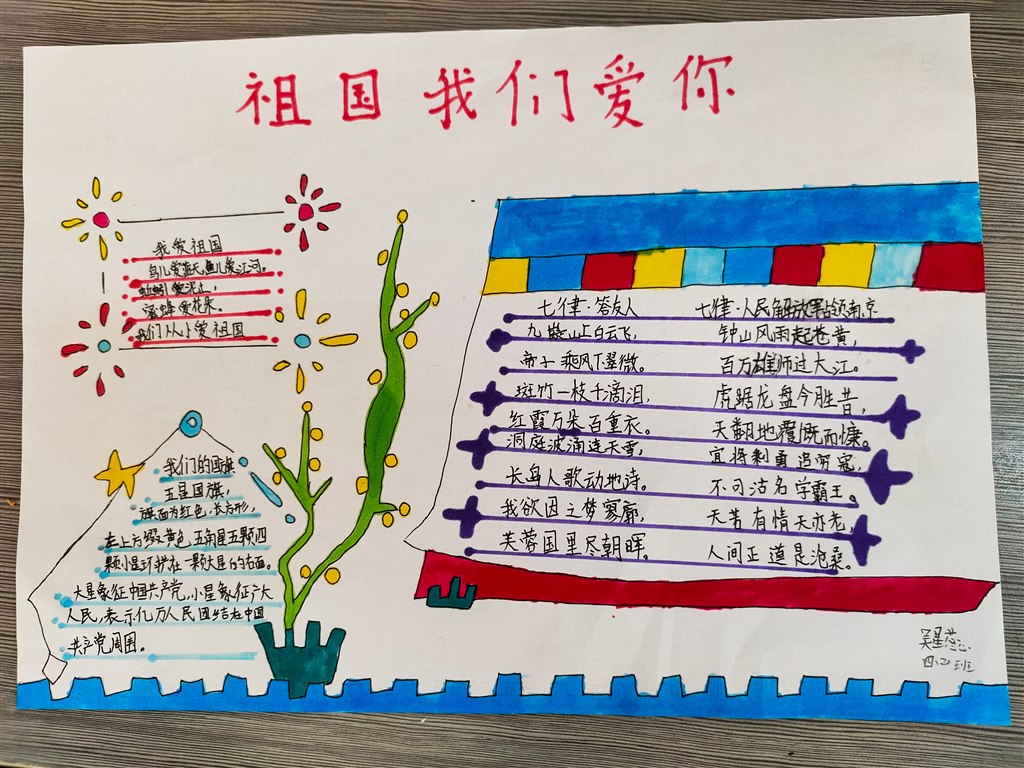 祖国我们爱你
我爱祖国
鸟儿爱蓝天,鱼儿爱江河。
蚯蚓爱泥土,
蜜蜂爱花朵。
我们从小爱祖国
我们的国旗
五星国旗,
旗面为红色,长方形,
左上方缀黄色五角星五颗四
颗小星环护在一颗大星的右面。
大星象征中国共产党,小星象征广大
人民,表示亿万人民团结在中国
共产党周围。
七律·答友人
九嶷山上白云飞,
帝子乘风下翠微。
斑竹一枝千滴泪,
红霞万朵百重衣。
洞庭波涌连天雪,
长岛人歌动地诗。
我欲因之梦寥廓,
芙蓉国里尽朝晖。
七律·人民解放军占领南京
钟山风雨起苍黄,
百万雄师过大江。
虎踞龙盘今胜昔,
天翻地覆慨而慷。
宜将剩勇追穷寇,
不可沽名学霸王。
天若有情天亦老,
人间正道是沧桑。
吴星
四(2)班